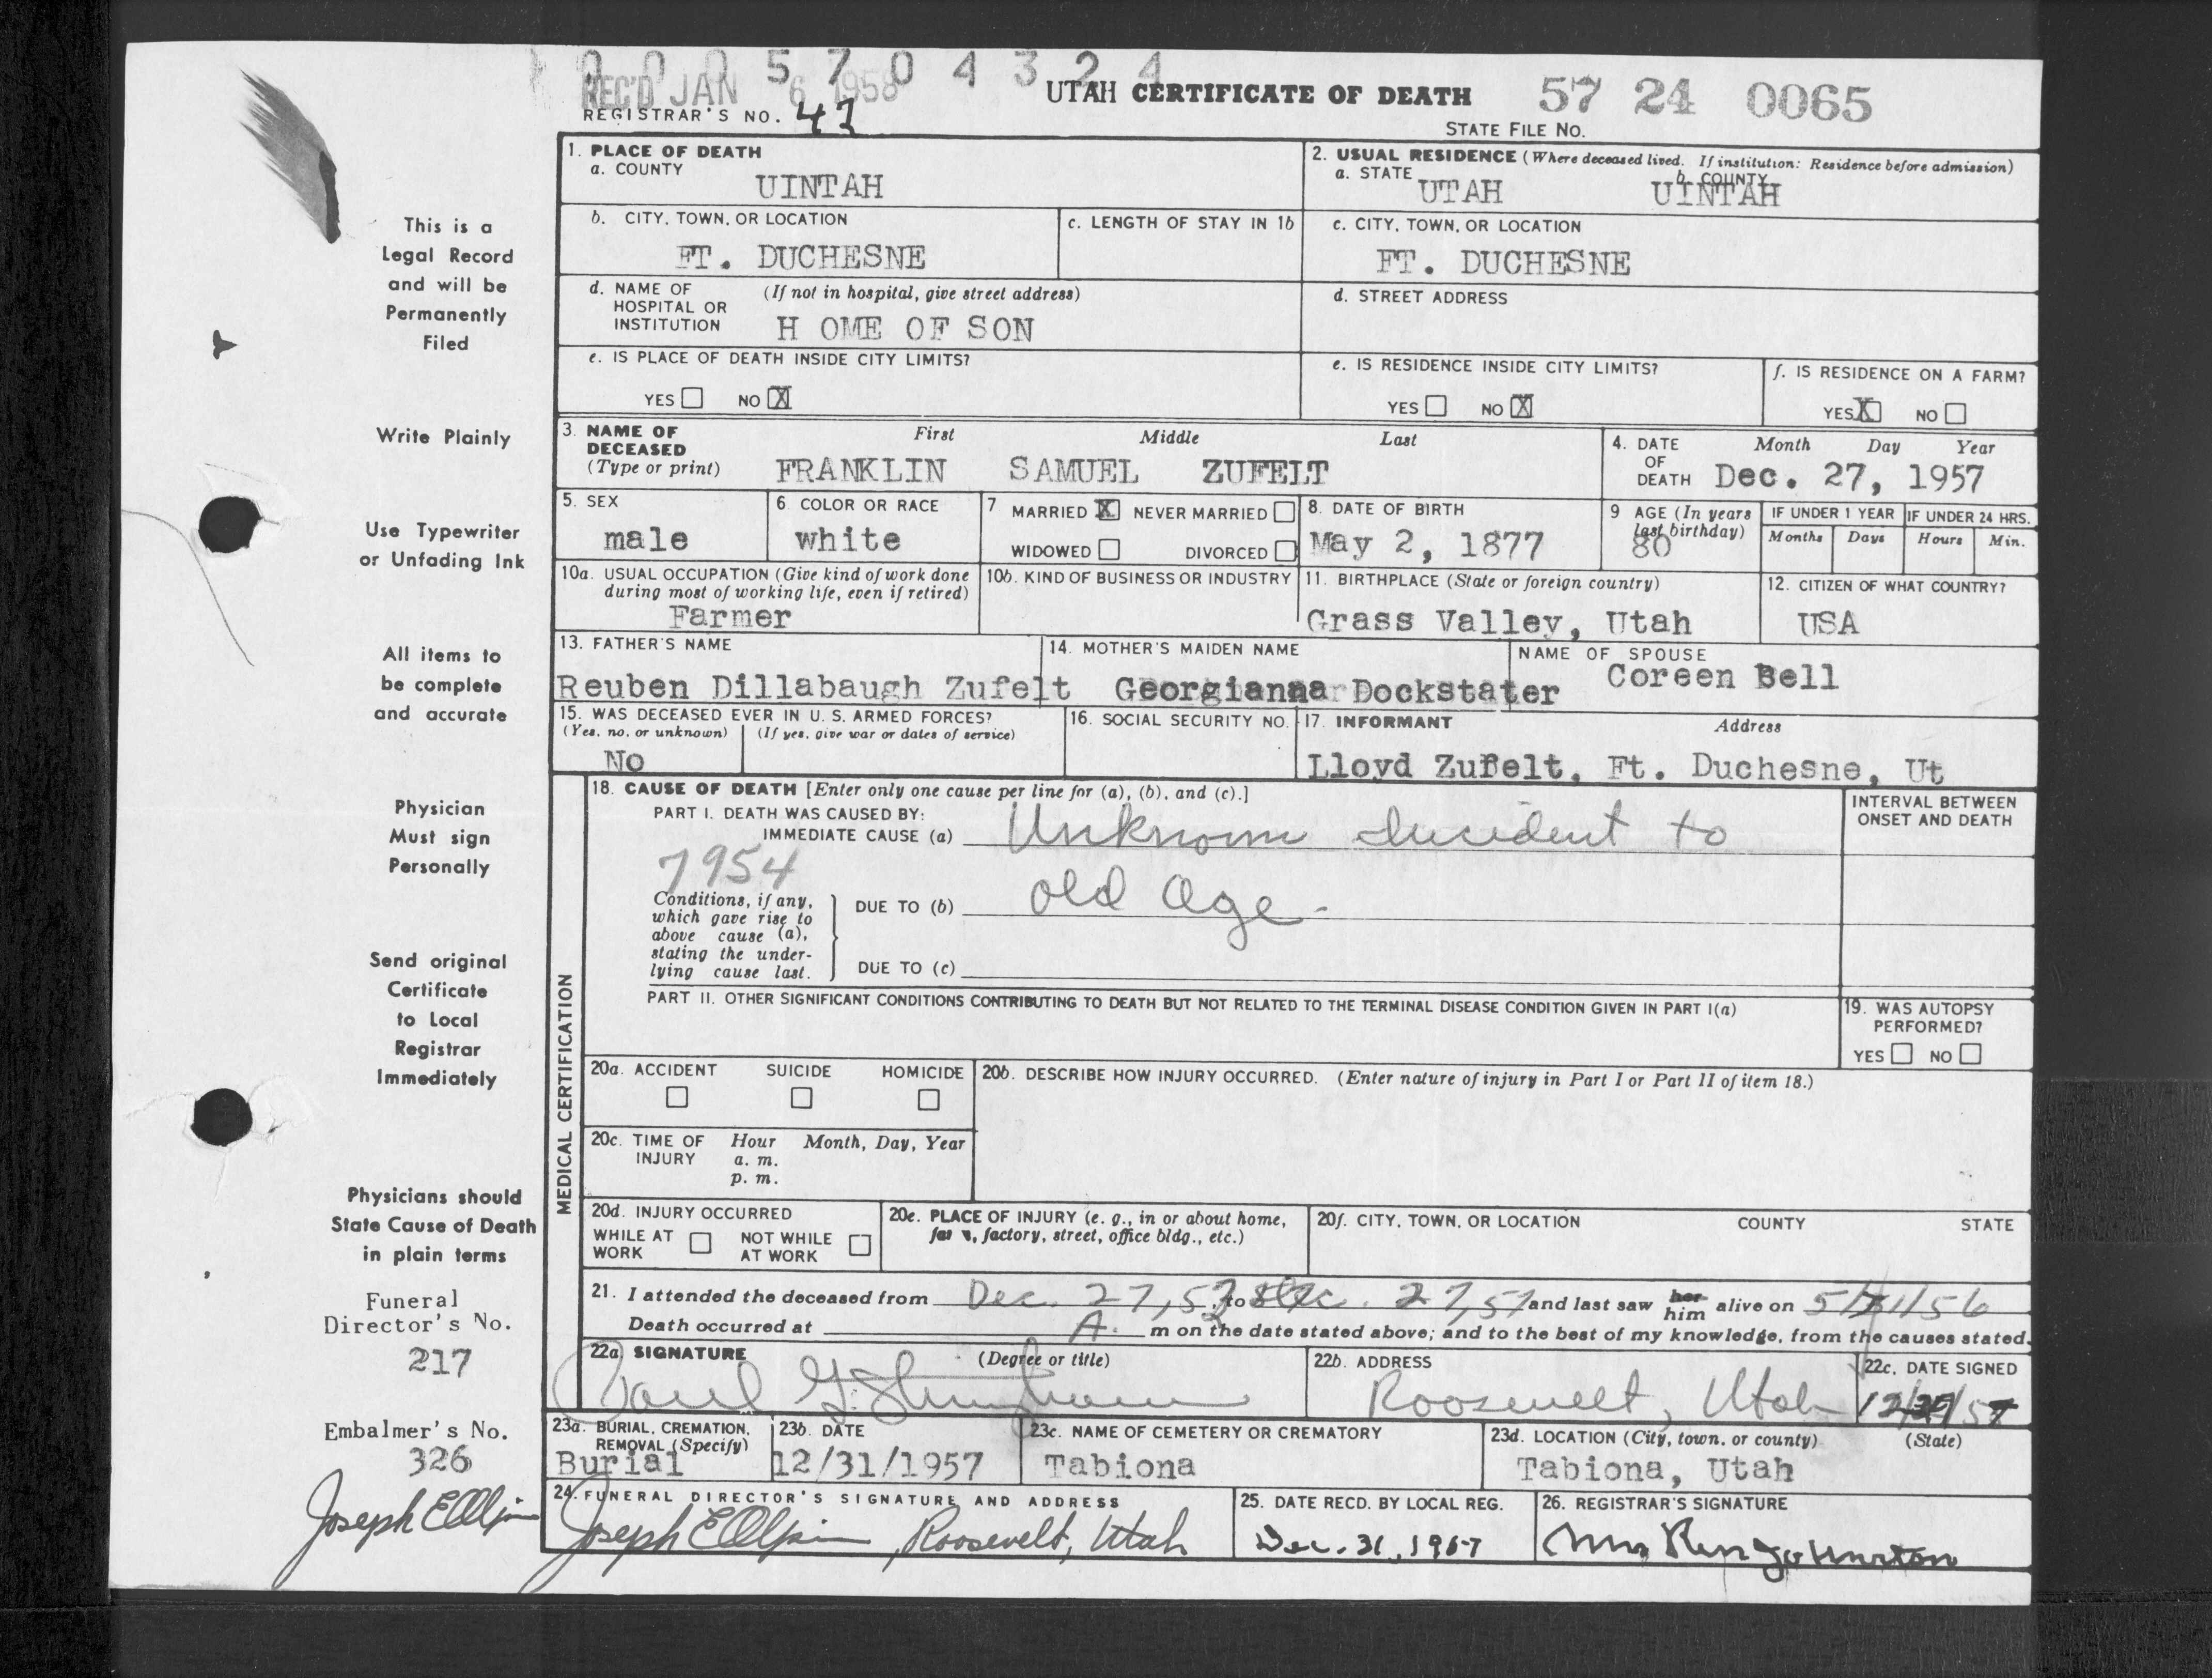 0 0 0 5 7 0 4 3 2 4
REC'D JAN 6 1958
UTAH CERTIFICATE OF DEATH
57 24 0065
REGISTRAR'S NO. 43
STATE FILE NO.
1. PLACE OF DEATH
a. COUNTY
UINTAH
2. USUAL RESIDENCE (Where deceased lived. If institution: Residence before admission)
a. STATE b. COUNTY
UTAH UINTAH
b. CITY, TOWN, OR LOCATION
FT. DUCHESNE
c. LENGTH OF STAY IN 1b
c. CITY, TOWN, OR LOCATION
FT. DUCHESNE
d. NAME OF HOSPITAL OR INSTITUTION (If not in hospital, give street address)
H OME OF SON
d. STREET ADDRESS
e. IS PLACE OF DEATH INSIDE CITY LIMITS?
YES NO X
e. IS RESIDENCE INSIDE CITY LIMITS?
YES NO X
f. IS RESIDENCE ON A FARM?
YES X NO
3. NAME OF DECEASED (Type or print)
First Middle Last
FRANKLIN SAMUEL ZUFELT
4. DATE OF DEATH Month Day Year
Dec. 27, 1957
5. SEX
male
6 COLOR OR RACE
white
7 MARRIED X NEVER MARRIED
WIDOWED DIVORCED
8. DATE OF BIRTH
May 2, 1877
9 AGE (In years last birthday)
80
IF UNDER 1 YEAR
Months Days
IF UNDER 24 HRS.
Hours Min.
10a. USUAL OCCUPATION (Give kind of work done during most of working life, even if retired)
Farmer
10b. KIND OF BUSINESS OR INDUSTRY
11. BIRTHPLACE (State or foreign country)
Grass Valley, Utah
12. CITIZEN OF WHAT COUNTRY?
USA
13. FATHER'S NAME
Reuben Dillabaugh Zufelt
14. MOTHER'S MAIDEN NAME
Georgianna Dockstater
NAME OF SPOUSE
Coreen Bell
15. WAS DECEASED EVER IN U. S. ARMED FORCES?
(Yes, no, or unknown) (If yes, give war or dates of service)
No
16. SOCIAL SECURITY NO.
17. INFORMANT Address
Lloyd Zufelt, Ft. Duchesne, Ut
MEDICAL CERTIFICATION
18. CAUSE OF DEATH [Enter only one cause per line for (a), (b), and (c).]
INTERVAL BETWEEN ONSET AND DEATH
PART I. DEATH WAS CAUSED BY:
IMMEDIATE CAUSE (a) Unknown incident to
7954
Conditions, if any, which gave rise to above cause (a), stating the underlying cause last.
DUE TO (b) old age.
DUE TO (c)
PART II. OTHER SIGNIFICANT CONDITIONS CONTRIBUTING TO DEATH BUT NOT RELATED TO THE TERMINAL DISEASE CONDITION GIVEN IN PART I(a)
19. WAS AUTOPSY PERFORMED?
YES NO
20a. ACCIDENT SUICIDE HOMICIDE
20b. DESCRIBE HOW INJURY OCCURRED. (Enter nature of injury in Part I or Part II of item 18.)
20c. TIME OF INJURY Hour Month, Day, Year
a. m.
p. m.
20d. INJURY OCCURRED
WHILE AT WORK NOT WHILE AT WORK
20e. PLACE OF INJURY (e. g., in or about home, farm, factory, street, office bldg., etc.)
20f. CITY, TOWN, OR LOCATION COUNTY STATE
21. I attended the deceased from Dec. 27, 57, to Dec. 27, 57 and last saw her him alive on
Death occurred at A. m on the date stated above; and to the best of my knowledge, from the causes stated.
22a. SIGNATURE (Degree or title)
Paul G. Stringham
22b. ADDRESS
Roosevelt, Utah
22c. DATE SIGNED
23a. BURIAL, CREMATION, REMOVAL (Specify)
Burial
23b. DATE
12/31/1957
23c. NAME OF CEMETERY OR CREMATORY
Tabiona
23d. LOCATION (City, town, or county) (State)
Tabiona, Utah
24. FUNERAL DIRECTOR'S SIGNATURE AND ADDRESS
Joseph E Olpin, Roosevelt, Utah
25. DATE RECD. BY LOCAL REG.
Dec. 31, 1957
26. REGISTRAR'S SIGNATURE
This is a
Legal Record
and will be
Permanently
Filed
Write Plainly
Use Typewriter
or Unfading Ink
All items to
be complete
and accurate
Physician
Must sign
Personally
Send original
Certificate
to Local
Registrar
Immediately
Physicians should
State Cause of Death
in plain terms
Funeral
Director's No.
217
Embalmer's No.
326
Joseph E Olpin